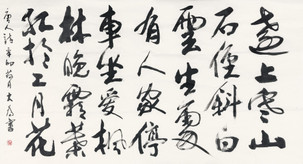 遠上寒山
石徑斜白
雲生處
有人家停
車坐愛楓
林晚霜葉
紅於二月花
唐人詩 月 書